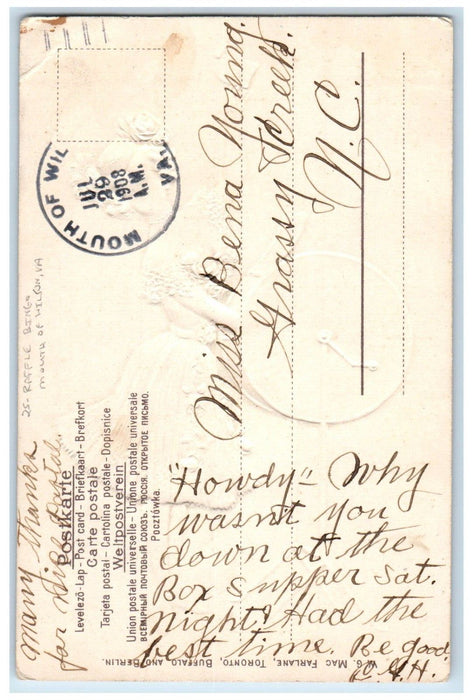 MOUTH OF WIL
VA
JUL
29
1908
A.M.
Miss Bena Young.
Grassy Creek.
N.C.
25- RAFFLE BINGO
MOUTH OF WILSON, VA
Many Thanks
for
Postal.
Postkarte
Levelező-Lap - Post card - Briefkaart - Brefkort
Carte postale
Tarjeta postal - Cartolina postale - Dopisnice
Weltpostverein
Union postale universelle - Unione postale universale
ВСЕМІРНЫЙ ПОЧТОВЫЙ СОЮЗЪ. РОССІЯ. ОТКРЫТОЕ ПИСЬМО.
Pocztówka.
"Howdy" - Why
wasn't you
down at the
Box Supper Sat.
night? Had the
best time. Be good.
W.G. MAC FARLANE, TORONTO, BUFFALO AND BERLIN.